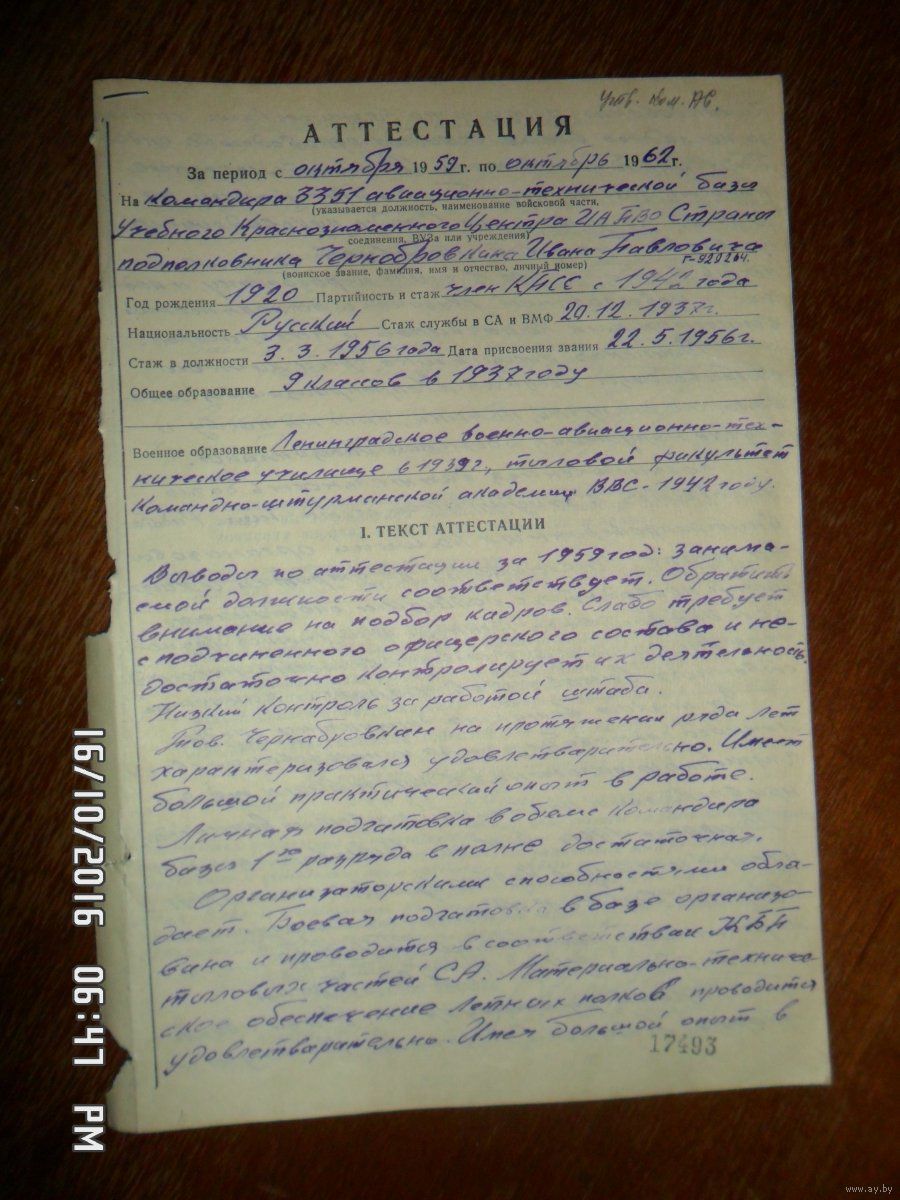 Утв. Ком. АС.
АТТЕСТАЦИЯ
За период с октября 1959 г. по октябрь 1962 г.
На Командира 3351 авиационно-технической базы
(указывается должность, наименование войсковой части,
Учебного Краснознаменного Центра ИА ПВО Страны
соединения, ВУЗа или учреждения)
подполковника Чернобровкина Ивана Павловича
Г-920264.
(воинское звание, фамилия, имя и отчество, личный номер)
Год рождения 1920 Партийность и стаж член КПСС с года
Национальность Русский Стаж службы в СА и ВМФ 20.12.1937г.
Стаж в должности 3.3.1956 года Дата присвоения звания 22.5.1956г.
Общее образование 9 классов в 1937 году
Военное образование Ленинградское военно-авиационно-тех-
ническое училище в 1939г., тыловой факультет
Командно-штурманской академии ВВС - 1942 году.
I. ТЕКСТ АТТЕСТАЦИИ
Выводы по аттестации за 1959 год: занима-
емой должности соответствует. Обратить
внимание на подбор кадров. Слабо требует
с подчиненного офицерского состава и не-
достаточно контролирует их деятельность.
Низкий контроль за работой штаба.
Тов. Чернабровкин на протяжении ряда лет
характеризовался удовлетварительно. Имеет
большой практический опыт в работе.
Личная подготовка в обьеме командира
базы 1го разряда в полне достаточная.
Организаторскими способностями обла-
дает. Боевая подготовка в базе организо-
вана и проводится в соответствии КБП
тыловых частей СА. Материально-техниче-
ское обеспечение летных полков проводится
удовлетварительно. Имея большой опыт в
17493
16/10/2016 06:47 PM
www.ay.by